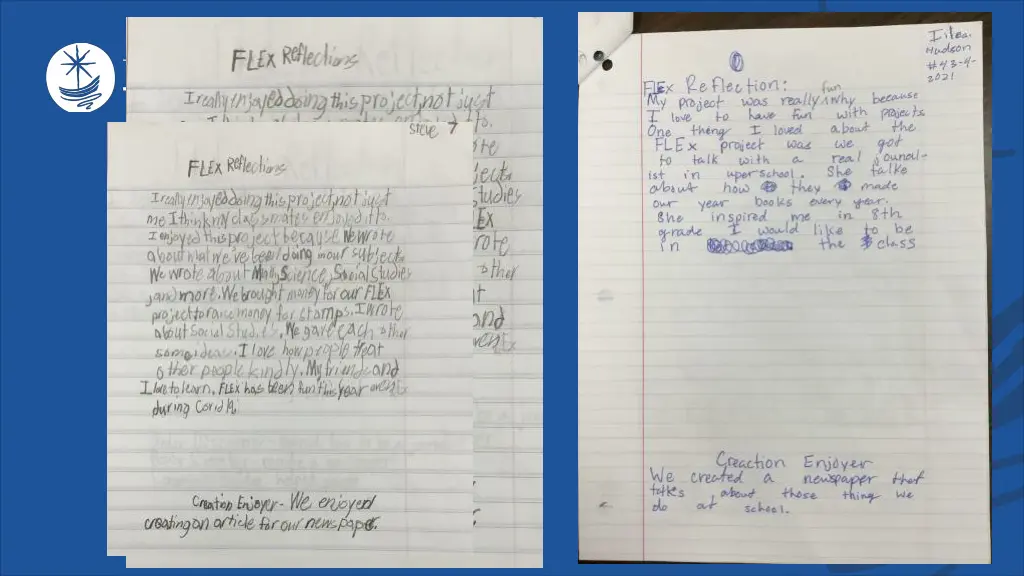 FLEX Reflections
I really enjoyed doing this project not just
Steve 7
FLEX Reflections
I really enjoyed doing this project not just
me I think my classmates enjoyed it to.
I enjoyed this project because We wrote
about what we've been doing in our subjects.
We wrote about Math, Science, Social Studies
,and more. We brought money for our FLEX
project to raise money for stamps. I wrote
about Social Studies. We gave each other
some ideas. I love how people treat
other people kindly. My friends and
I love to learn. FLEX has been fun this year
during Covid 19.
Creation Enjoyer - We enjoyed
creating an article for our newspaper.
Hudson
#43-4-
2021
FLEx Reflection:
fun
My project was really why because
I love to have fun with projects
One thing I loved about the
FLEx project was we got
to talk with a real jounal-
ist in uperschool. She talke
about how they made
our year books every year.
She inspired me in 8th
grade I would like to be
in the class
Creaction Enjoyer
We created a newspaper that
talks about those thing we
do at school.